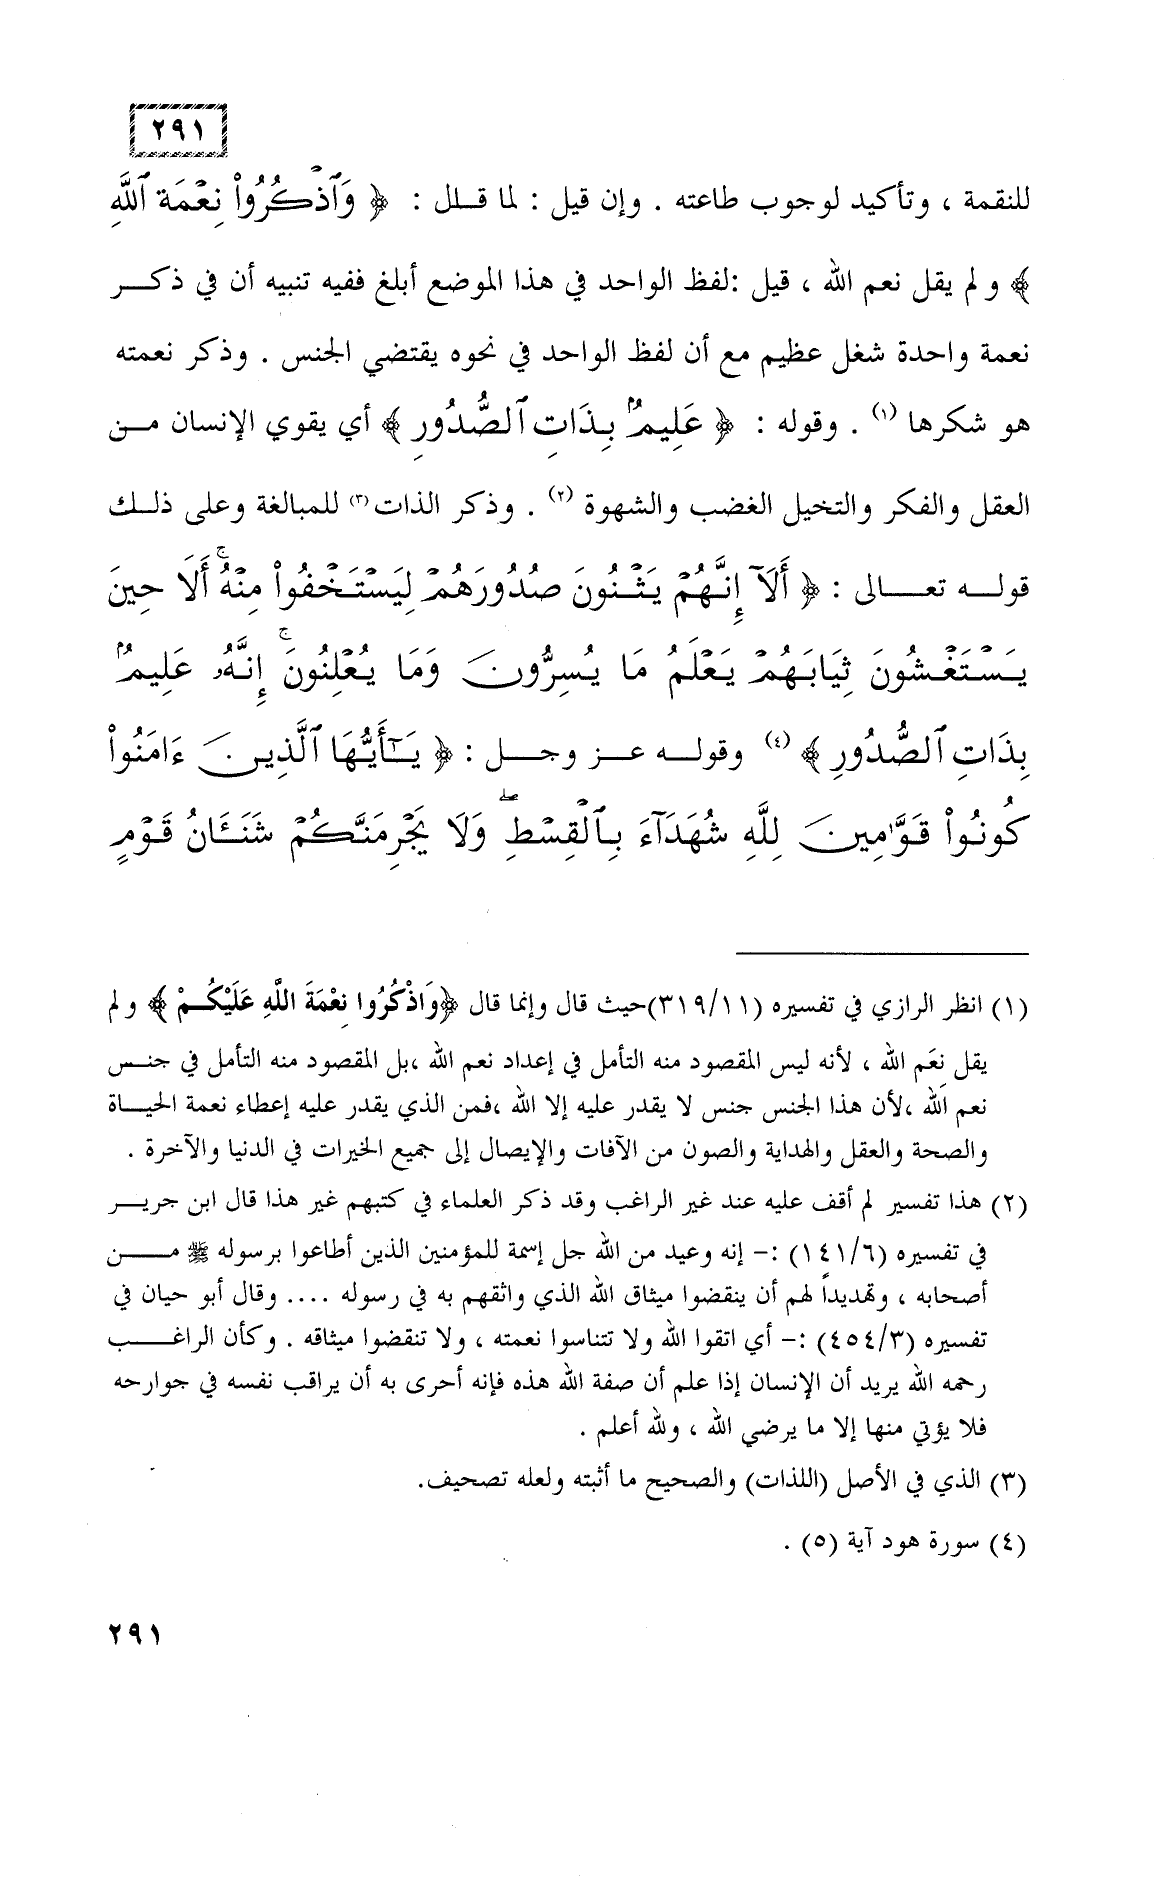 ٢٩١
للنقمة ، وتأكيد لوجوب طاعته . وإن قيل : لما قـلل : ﴿ وَٱذْكُرُواْ نِعْمَةَ ٱللَّهِ
﴾ ولم يقل نعم الله ، قيل :لفظ الواحد في هذا الموضع أبلغ ففيه تنبيه أن في ذكـــر
نعمة واحدة شغل عظيم مع أن لفظ الواحد في نحوه يقتضي الجنس . وذكر نعمته
هو شكرها (١) . وقوله : ﴿ عَلِيمٌۢ بِذَاتِ ٱلصُّدُورِ ﴾ أي يقوي الإنسان مــن
العقل والفكر والتخيل الغضب والشهوة (٢) . وذكر الذات(٣) للمبالغة وعلى ذلــك
قولـــه تعـــــالى : ﴿ أَلَآ إِنَّهُمْ يَثْنُونَ صُدُورَهُمْ لِيَسْتَخْفُواْ مِنْهُۚ أَلَا حِينَ
يَسْتَغْشُونَ ثِيَابَهُمْ يَعْلَمُ مَا يُسِرُّونَ وَمَا يُعْلِنُونَۚ إِنَّهُۥ عَلِيمٌۢ
بِذَاتِ ٱلصُّدُورِ ﴾ (٤) وقولـــه عـــز وجـــل : ﴿ يَـٰٓأَيُّهَا ٱلَّذِينَ ءَامَنُواْ
كُونُواْ قَوَّٰمِينَ لِلَّهِ شُهَدَآءَ بِٱلْقِسْطِۖ وَلَا يَجْرِمَنَّكُمْ شَنَـَٔانُ قَوْمٍ
(١) انظر الرازي في تفسيره (٣١٩/١١)حيث قال وإنما قال ﴿وَاذْكُرُوا نِعْمَةَ اللَّهِ عَلَيْكُــمْ ﴾ ولم
يقل نِعَم الله ، لأنه ليس المقصود منه التأمل في إعداد نعم الله ،بل المقصود منه التأمل في جنــس
نعم الله ،لأن هذا الجنس جنس لا يقدر عليه إلا الله ،فمن الذي يقدر عليه إعطاء نعمة الحيــاة
والصحة والعقل والهداية والصون من الآفات والإيصال إلى جميع الخيرات في الدنيا والآخرة .
(٢) هذا تفسير لم أقف عليه عند غير الراغب وقد ذكر العلماء في كتبهم غير هذا قال ابن جريـــر
في تفسيره (١٤١/٦) :– إنه وعيد من الله جل إسمة للمؤمنين الذين أطاعوا برسوله ﷺ مـــــن
أصحابه ، وتهديداً لهم أن ينقضوا ميثاق الله الذي واثقهم به في رسوله .... وقال أبو حيان في
تفسيره (٤٥٤/٣) :– أي اتقوا الله ولا تتناسوا نعمته ، ولا تنقضوا ميثاقه . وكأن الراغـــــب
رحمه الله يريد أن الإنسان إذا علم أن صفة الله هذه فإنه أحرى به أن يراقب نفسه في جوارحه
فلا يؤتي منها إلا ما يرضي الله ، ولله أعلم .
(٣) الذي في الأصل (اللذات) والصحيح ما أثبته ولعله تصحيف.
(٤) سورة هود آية (٥) .
٢٩١